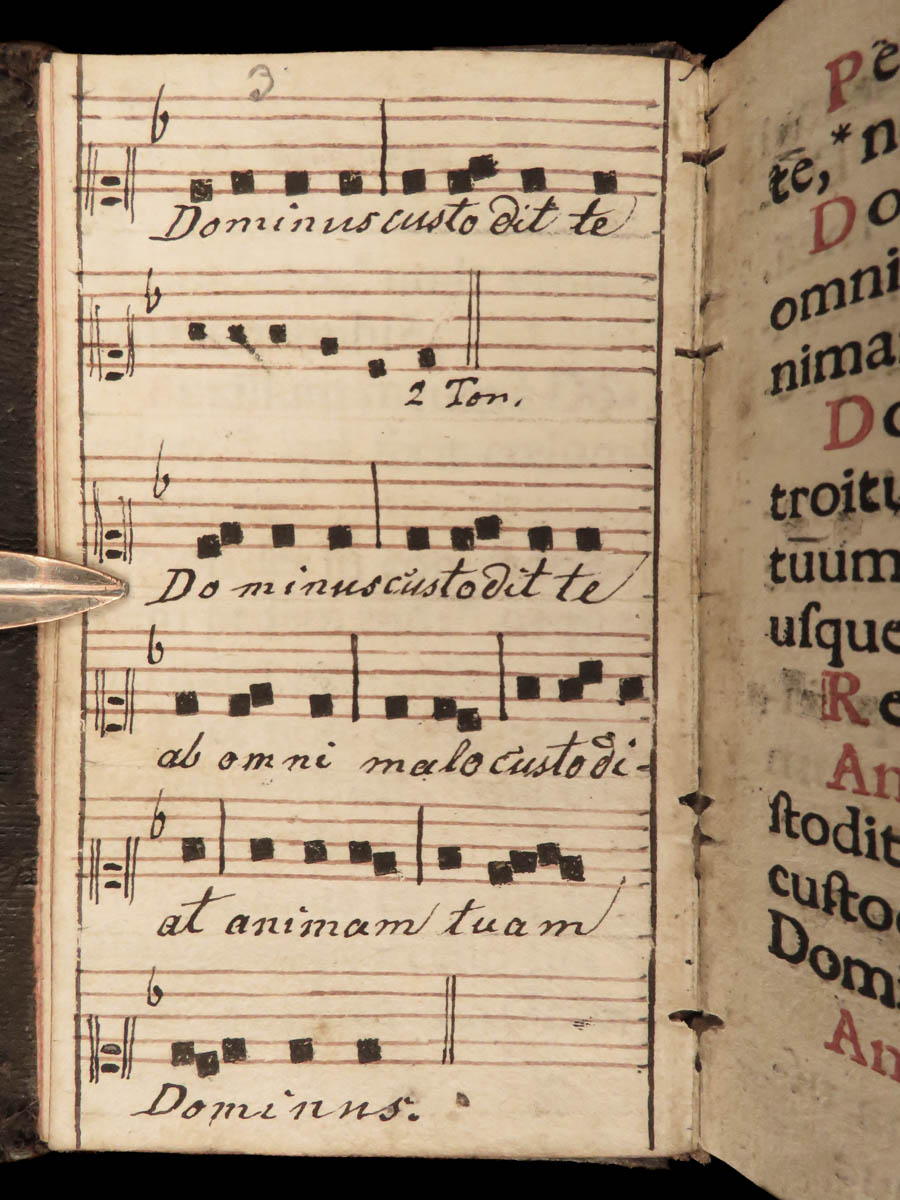 3
Dominus custodit te
2 Ton.
Dominus custodit te
ab omni malo custodi-
at animam tuam
Dominus.
Pe
te, * n
Do
omni
nima
Do
troitu
tuum
uſque
Re
An
ſtodit
cuſto
Domi
An